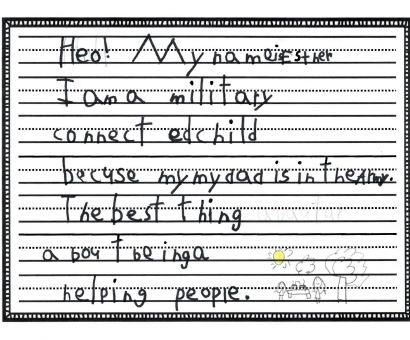 Heo! My name is Esther
I am a military
connect ed child
becuse my my dad is in the Army.
The best thing
a bout being a
helping people.